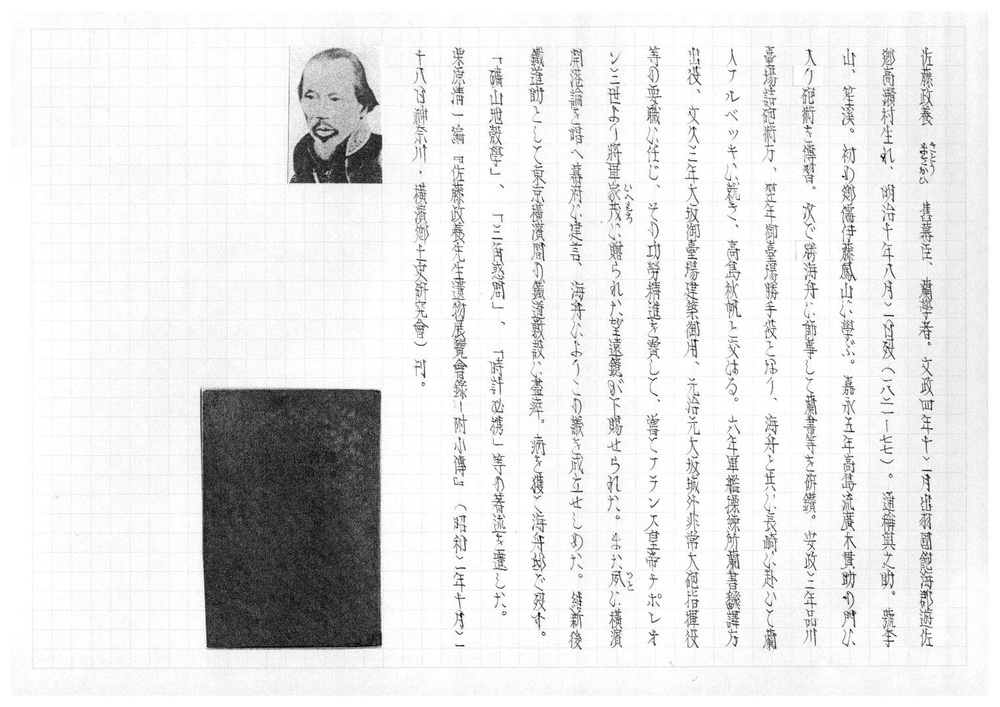 佐藤政養 さとうまさかひ 舊幕臣、蘭學者。文政四年十二月出羽國飽海郡遊佐
鄕高瀬村生れ、明治十年八月二日歿(一八二一ー七七)。通稱與之助。號李
山、笙溪。初め鄕儒伊藤鳳山に學ぶ。嘉永五年高島流廣木貫助の門に
入り砲術を傳習。次で勝海舟に師事して蘭書等を研鑽。安政三年品川
臺場詰砲術方、翌年御臺場勝手役となり、海舟と共に長崎に赴いて蘭
人フルベッキに就き、高島秋帆と交はる。六年軍艦操練所蘭書飜譯方
出役、文久三年大坂御臺場建築御用、元治元大坂城外非常大砲指揮役
等の要職に任じ、その功勞精進を賞して、嘗てフランス皇帝ナポレオ
ン三世より將軍家茂いへもちに贈られた望遠鏡が下賜せられた。また夙つとに橫濱
開港論を唱へ幕府に建言、海舟によりこの議を成立せしめた。維新後
鐵道助として東京橫濱間の鐵道敷設に盡瘁。病を獲て海舟邸で歿す。
「礦山地殼學」、「三角惑問」、「時計必携」等の著述を遺した。
栗原淸一編『佐藤政養先生遺物展覽會錄ー附小傳』(昭和二年十月二
十八日神奈川・橫濱鄕土史研究會)刊。